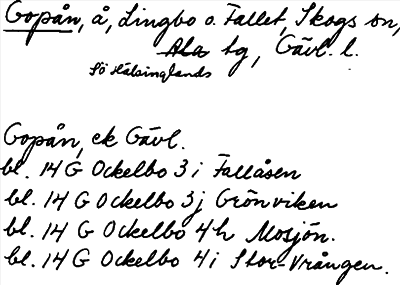 Gopån, å, Lingbo o. Fallet, Skogs sn,
Ala tg, Gävl. l.
Sö Hälsinglands
Gopån, ek Gävl.
bl. 14 G Ockelbo 3 i Fallåsen
bl. 14 G Ockelbo 3j Grönviken
bl. 14 G Ockelbo 4h Mosjön.
bl. 14 G Ockelbo 4i Stor-Vrången.